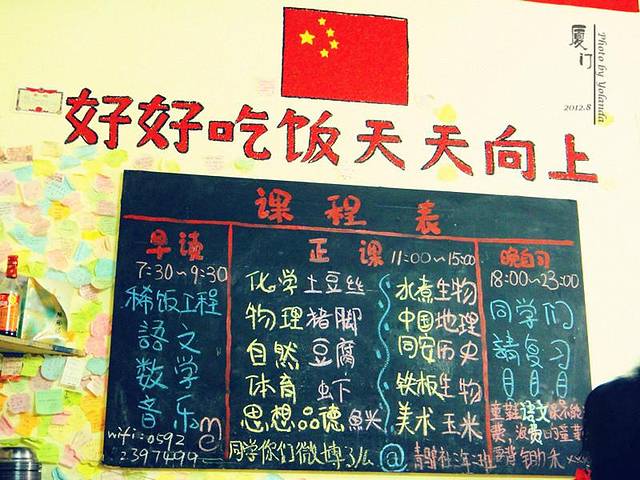 厦门
Photo by Yolanda
2012.8
好好吃饭天天向上
课程表
早读
7:30~9:30
稀饭工程
語文
数学
音乐
wifi:0592
2397499
正课 11:00~15:00
化学土豆丝
物理猪脚
自然豆腐
体育虾
思想品德鱼米
水煮生物
中国地理
同安历史
铁板生物
美术玉米
同学你们微博了么@
晚自习
18:00~23:00
同学们
請复习
月月月